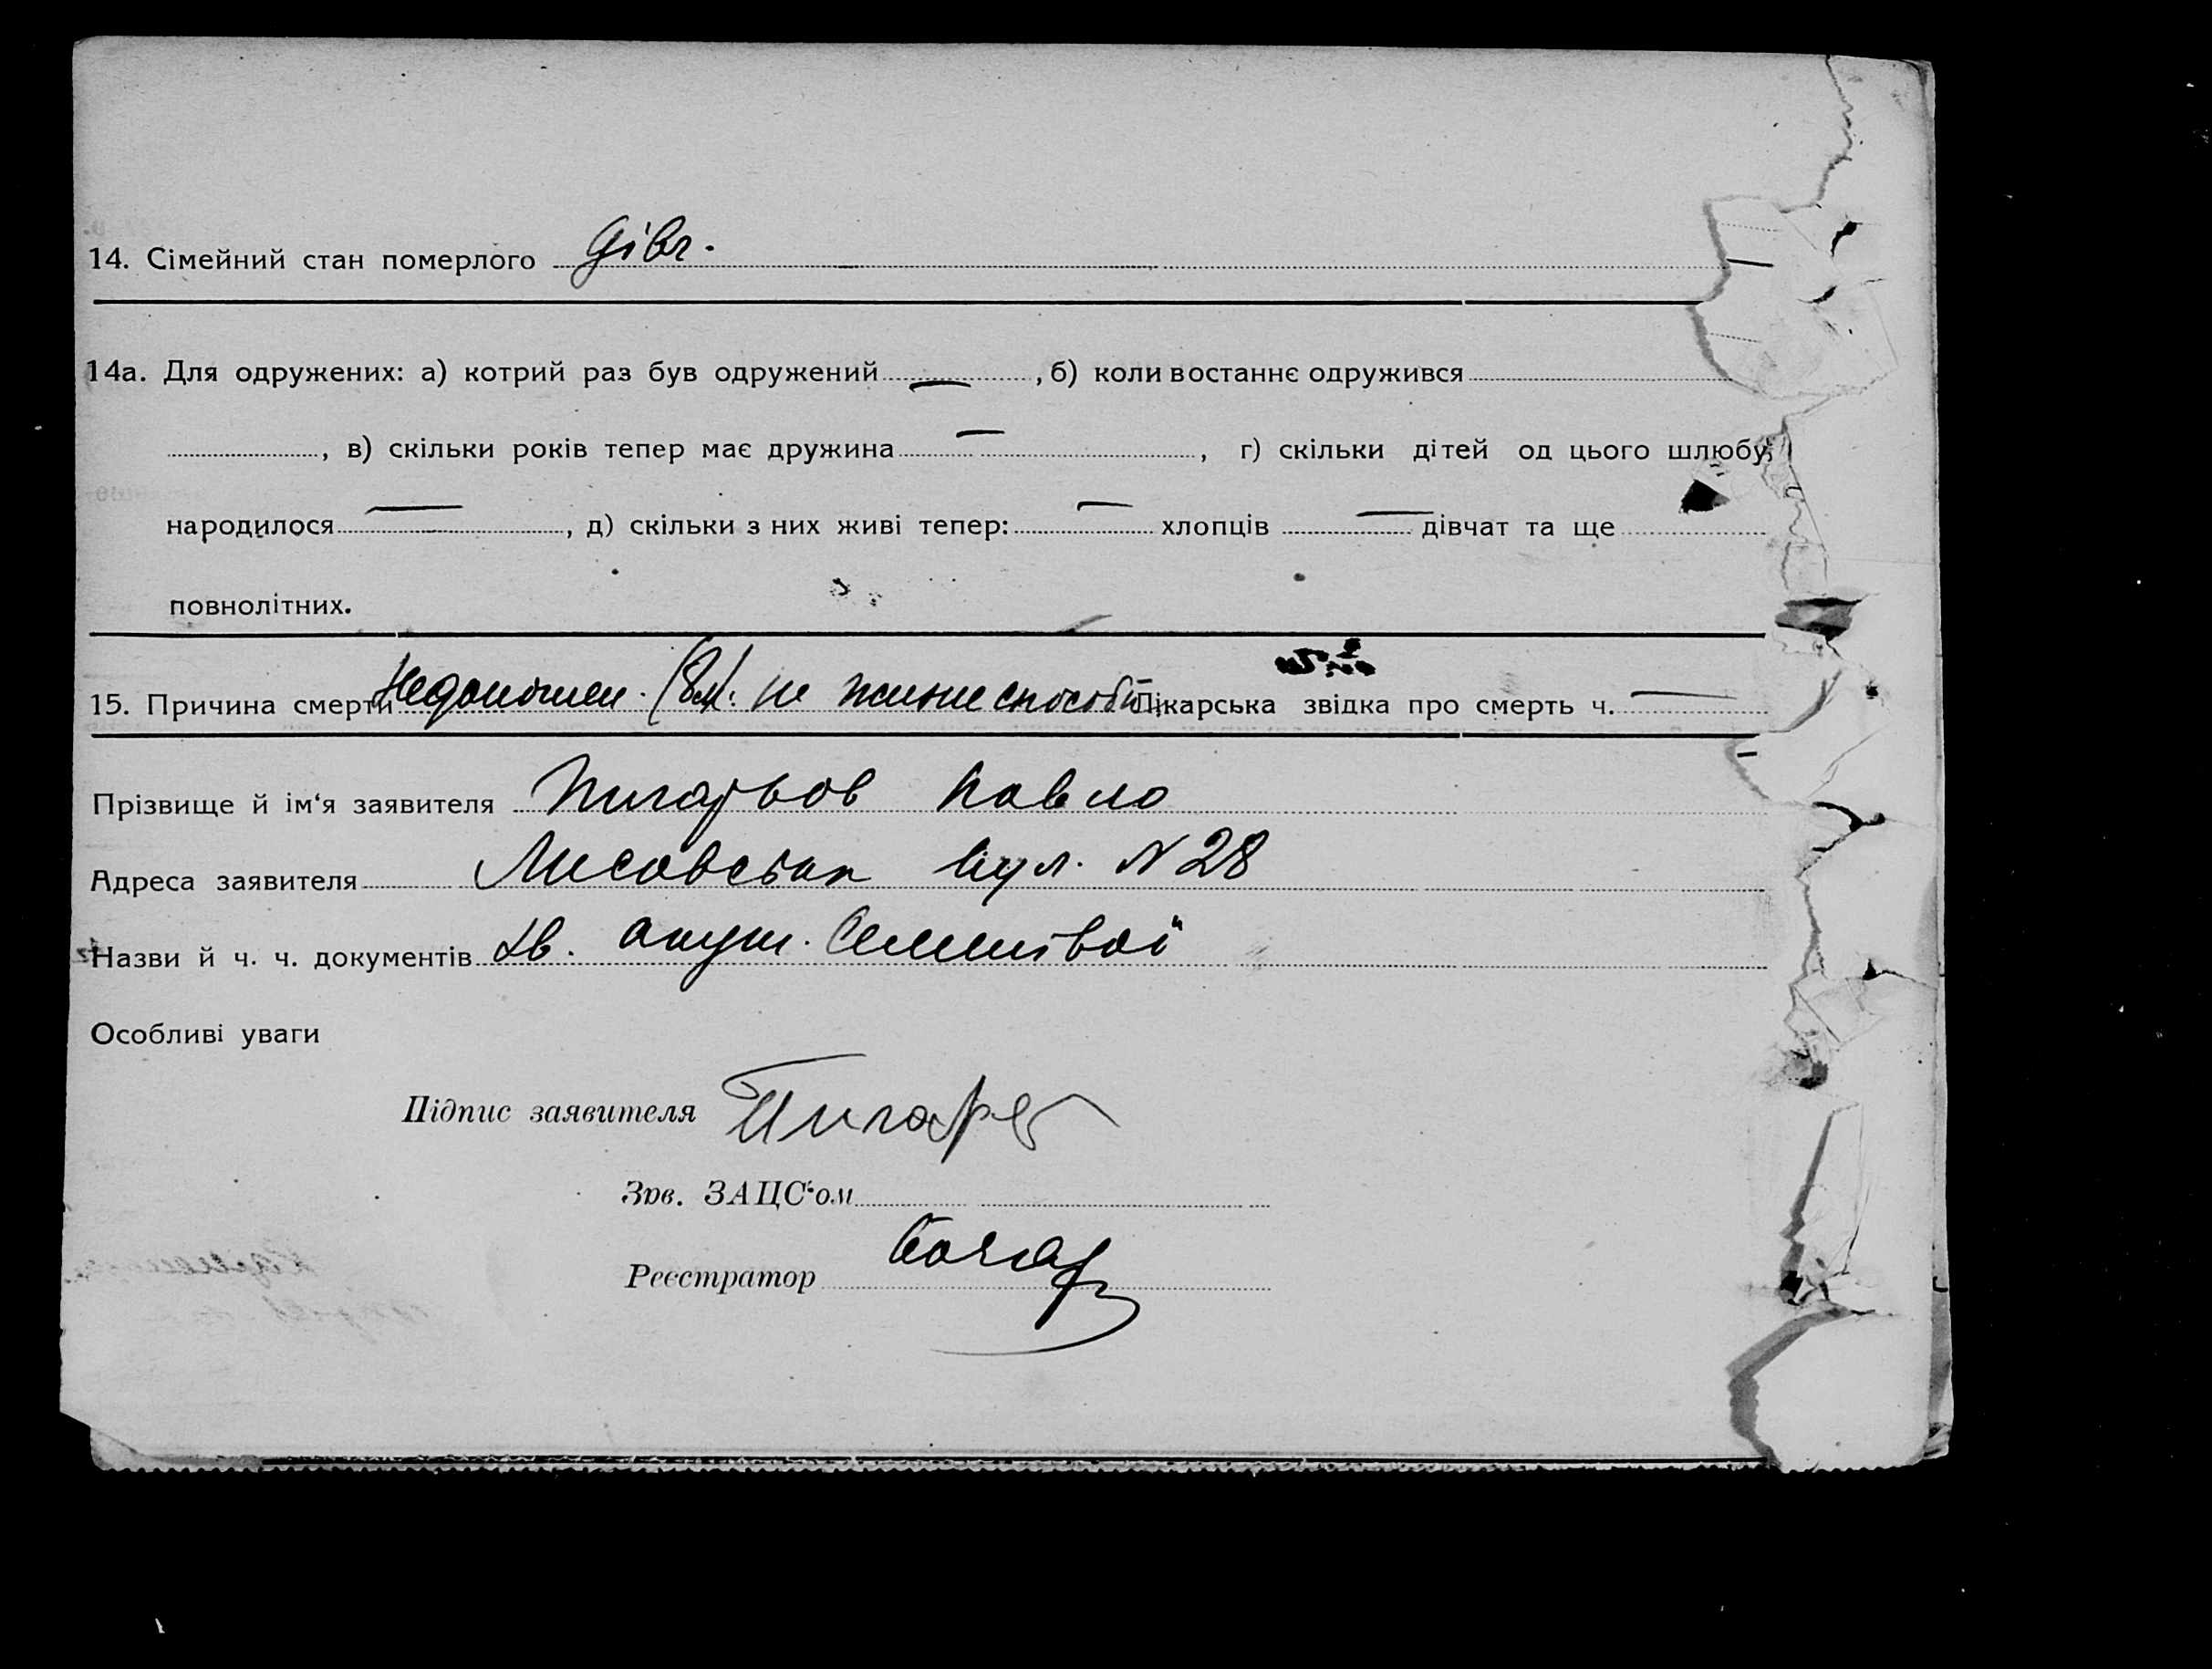 14. Сімейний стан померлого дівч.
14а. Для одружених: а) котрий раз був одружений — , б) коли востаннє одружився
, в) скільки років тепер має дружина — , г) скільки дітей од цього шлюбу
народилося — , д) скільки з них живі тепер: — хлопців — дівчат та ще
повнолітних.
15. Причина смерти Недоношен. (8 м. не Лікарська звідка про смерть ч. —
Прізвище й ім‘я заявителя Пигарьов Павло
Адреса заявителя Лисовська вул. N 28
Назви й ч. ч. документів акуш.
Особливі уваги
Підпис заявителя Пигарев
Зав. ЗАЦС‘ом
Реєстратор Бочар